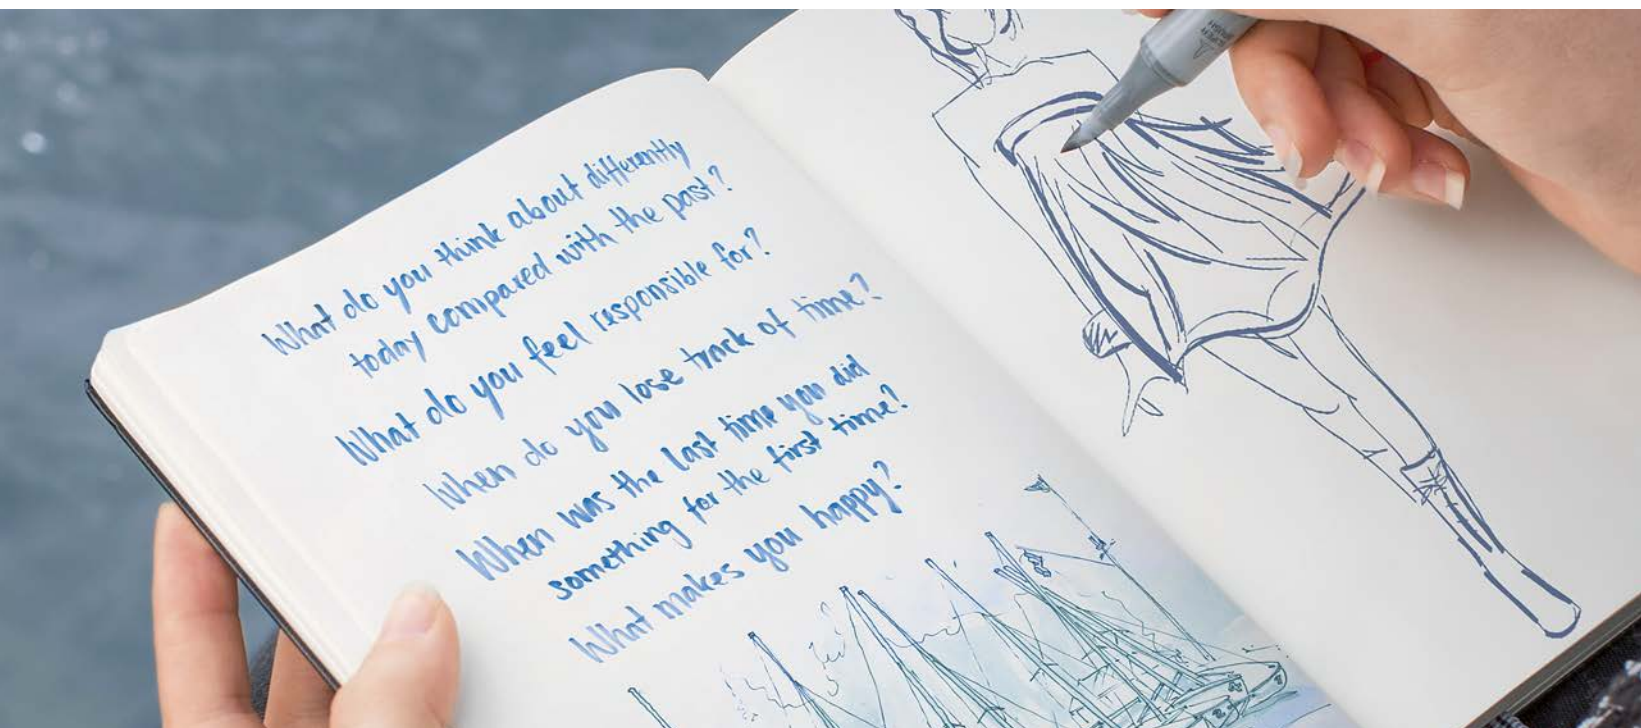 What do you think about differently
today compared with the past?
What do you feel responsible for?
When do you lose track of time?
When was the last time you did
something for the first time?
What makes you happy?